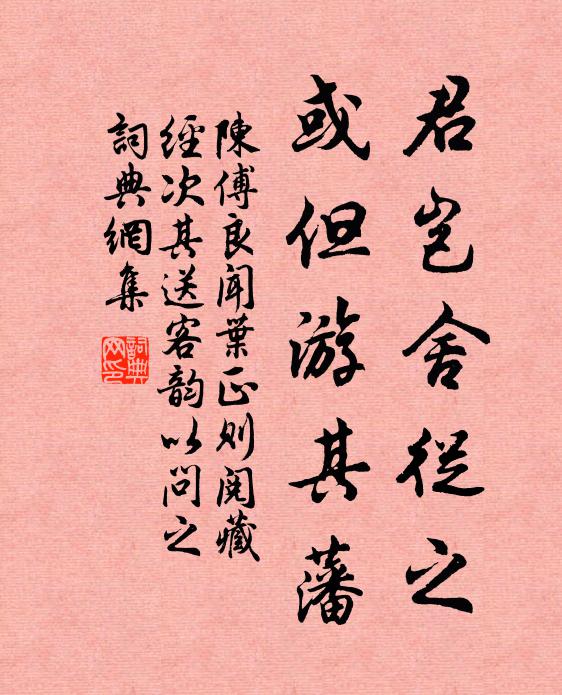 君豈舍從之
或但游其藩
陳傅良聞葉正則閱藏
經次其送客韵以問之
詞典網集
詞典
网印